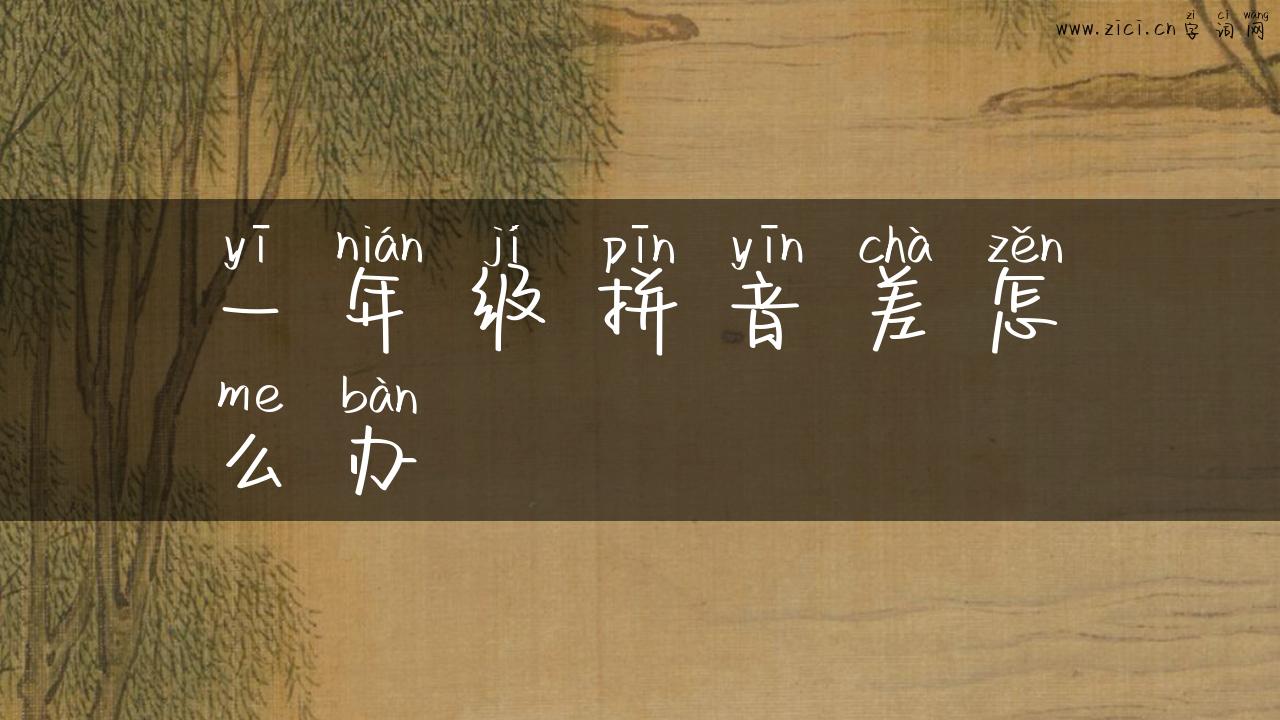 zì cí wǎng
www.zici.cn 字词网
yī nián jí pīn yīn chà zěn
一年级拼音差怎
me bàn
么办